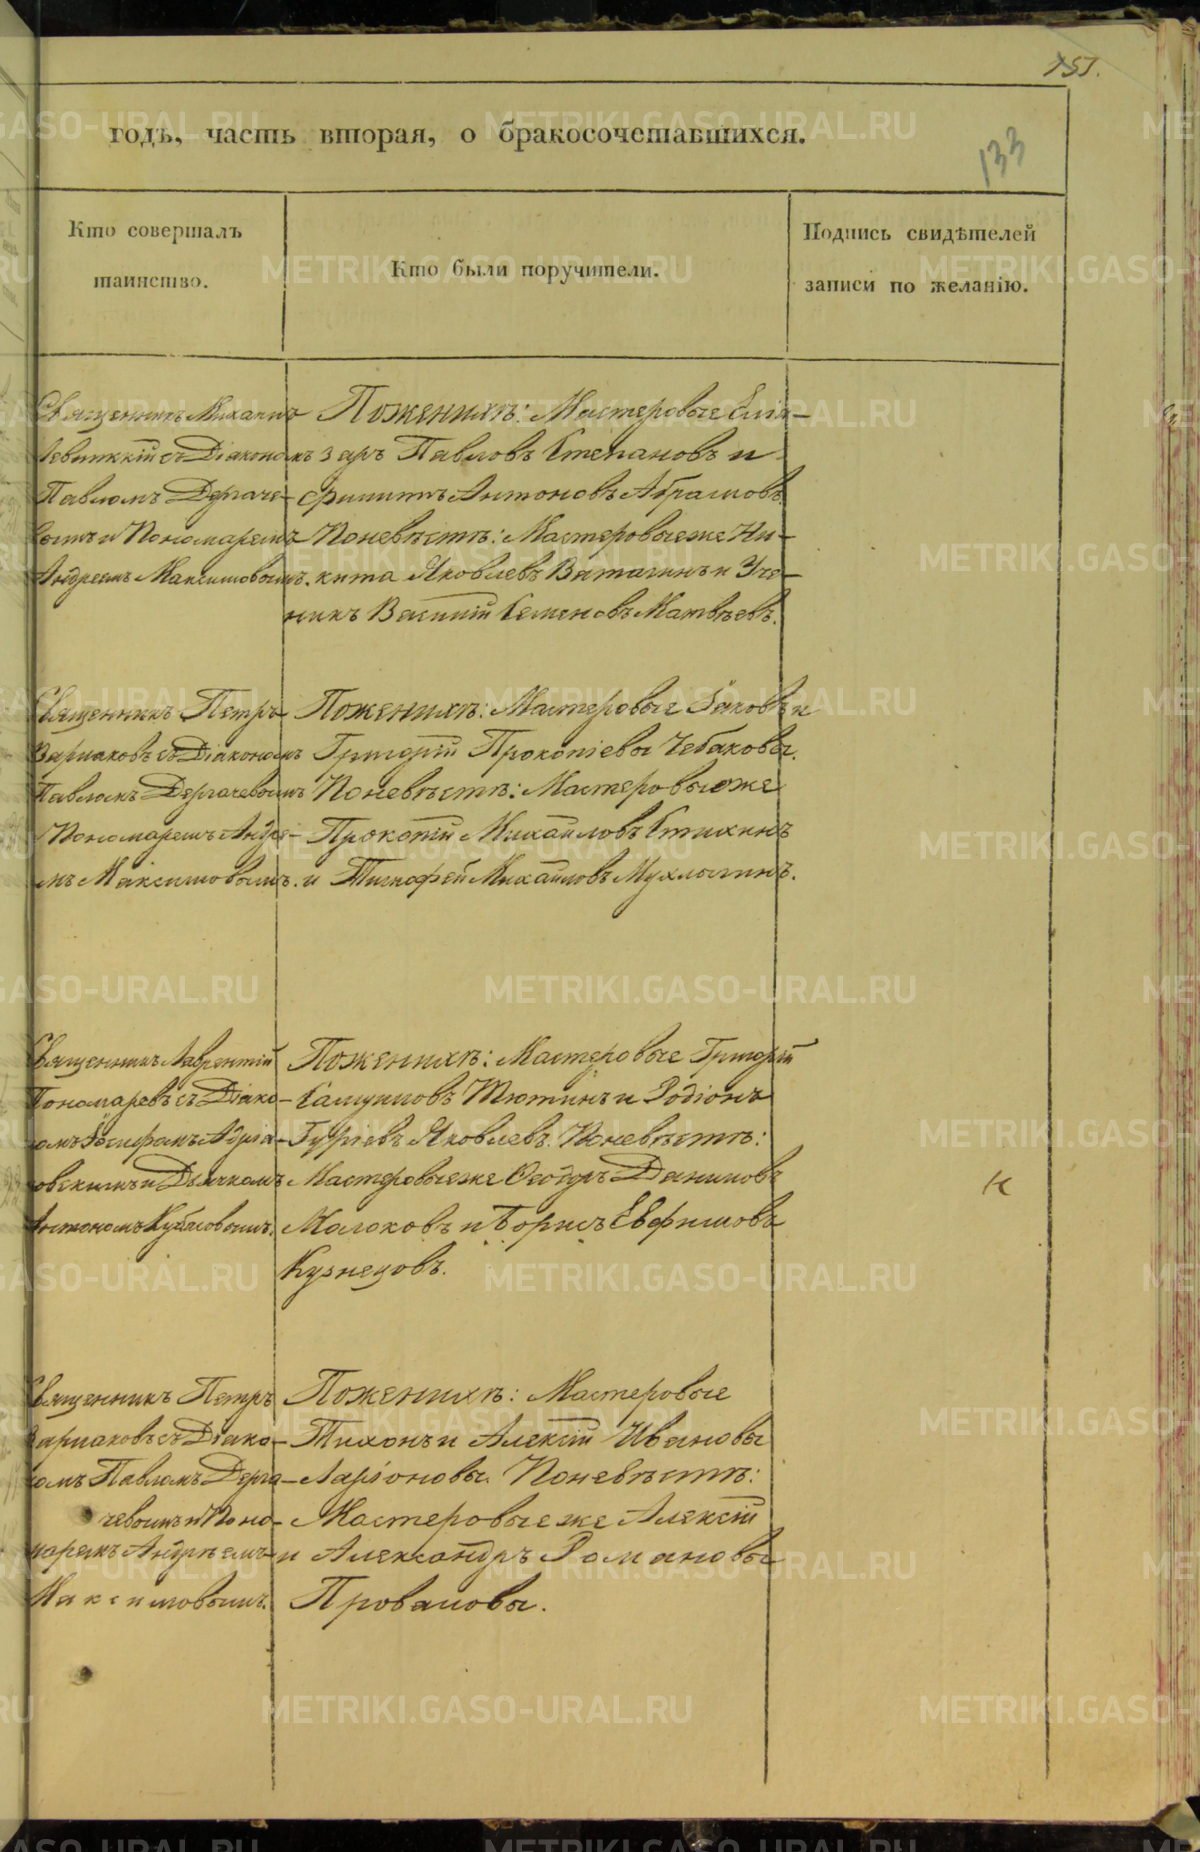 151.
133
годъ, часть вторая, о бракосочетавшихся.
Кто совершалъ
таинство.
Кто были поручители.
Подпись свидѣтелей
записи по желанію.
Священникъ Михаилъ
Левитскій съ Діакономъ
Павломъ Дергаче-
вымъ и Пономаремъ
Андреемъ Максимовымъ.
По женихѣ: Мастеровые Елиа-
заръ Павловъ Степановъ и
Филиппъ Антоновъ Абрамовъ
По невѣстѣ: Мастеровые же Ни-
кита Яковлевъ Ватагинъ и Уче-
никъ Василій Семеновъ Матвѣевъ.
Священникъ Петръ
Варнаковъ съ Діакономъ
Павломъ Дергачевымъ
Пономаремъ Андре-
емъ Максимовымъ.
По женихѣ: Мастеровые Іаковъ и
Григорій Прокопіевы Чебаковы.
По невѣстѣ: Мастеровые же
Прокопій Михаиловъ Стихинъ
и Тимофей Михаиловъ Мухлынинъ.
Священникъ Лаврентій
Пономаревъ съ Діако-
омъ Іосифомъ Адріа-
овскимъ и Дьячкомъ
Антономъ Кубасовымъ.
По женихѣ: Мастеровые Григорій
Самуиловъ Тютинъ и Родіонъ
Гуріевъ Яковлевъ. По невѣстѣ:
Мастеровые же Ѳеодоръ Даниловъ
Малоковъ и Борисъ Евфимовъ
Кузнецовъ.
к
Священникъ Петръ
Варнаковъ съ Діако-
омъ Павломъ Дерга-
чевымъ и Поно-
маремъ Андреемъ
Максимовымъ.
По женихѣ: Мастеровые
Тихонъ и Алексій Ивановы
Ларіоновы. По невѣстѣ:
Мастеровые же Алексій
и Александръ Романовы
Проваловы.
METRIKI.GASO-URAL.RU